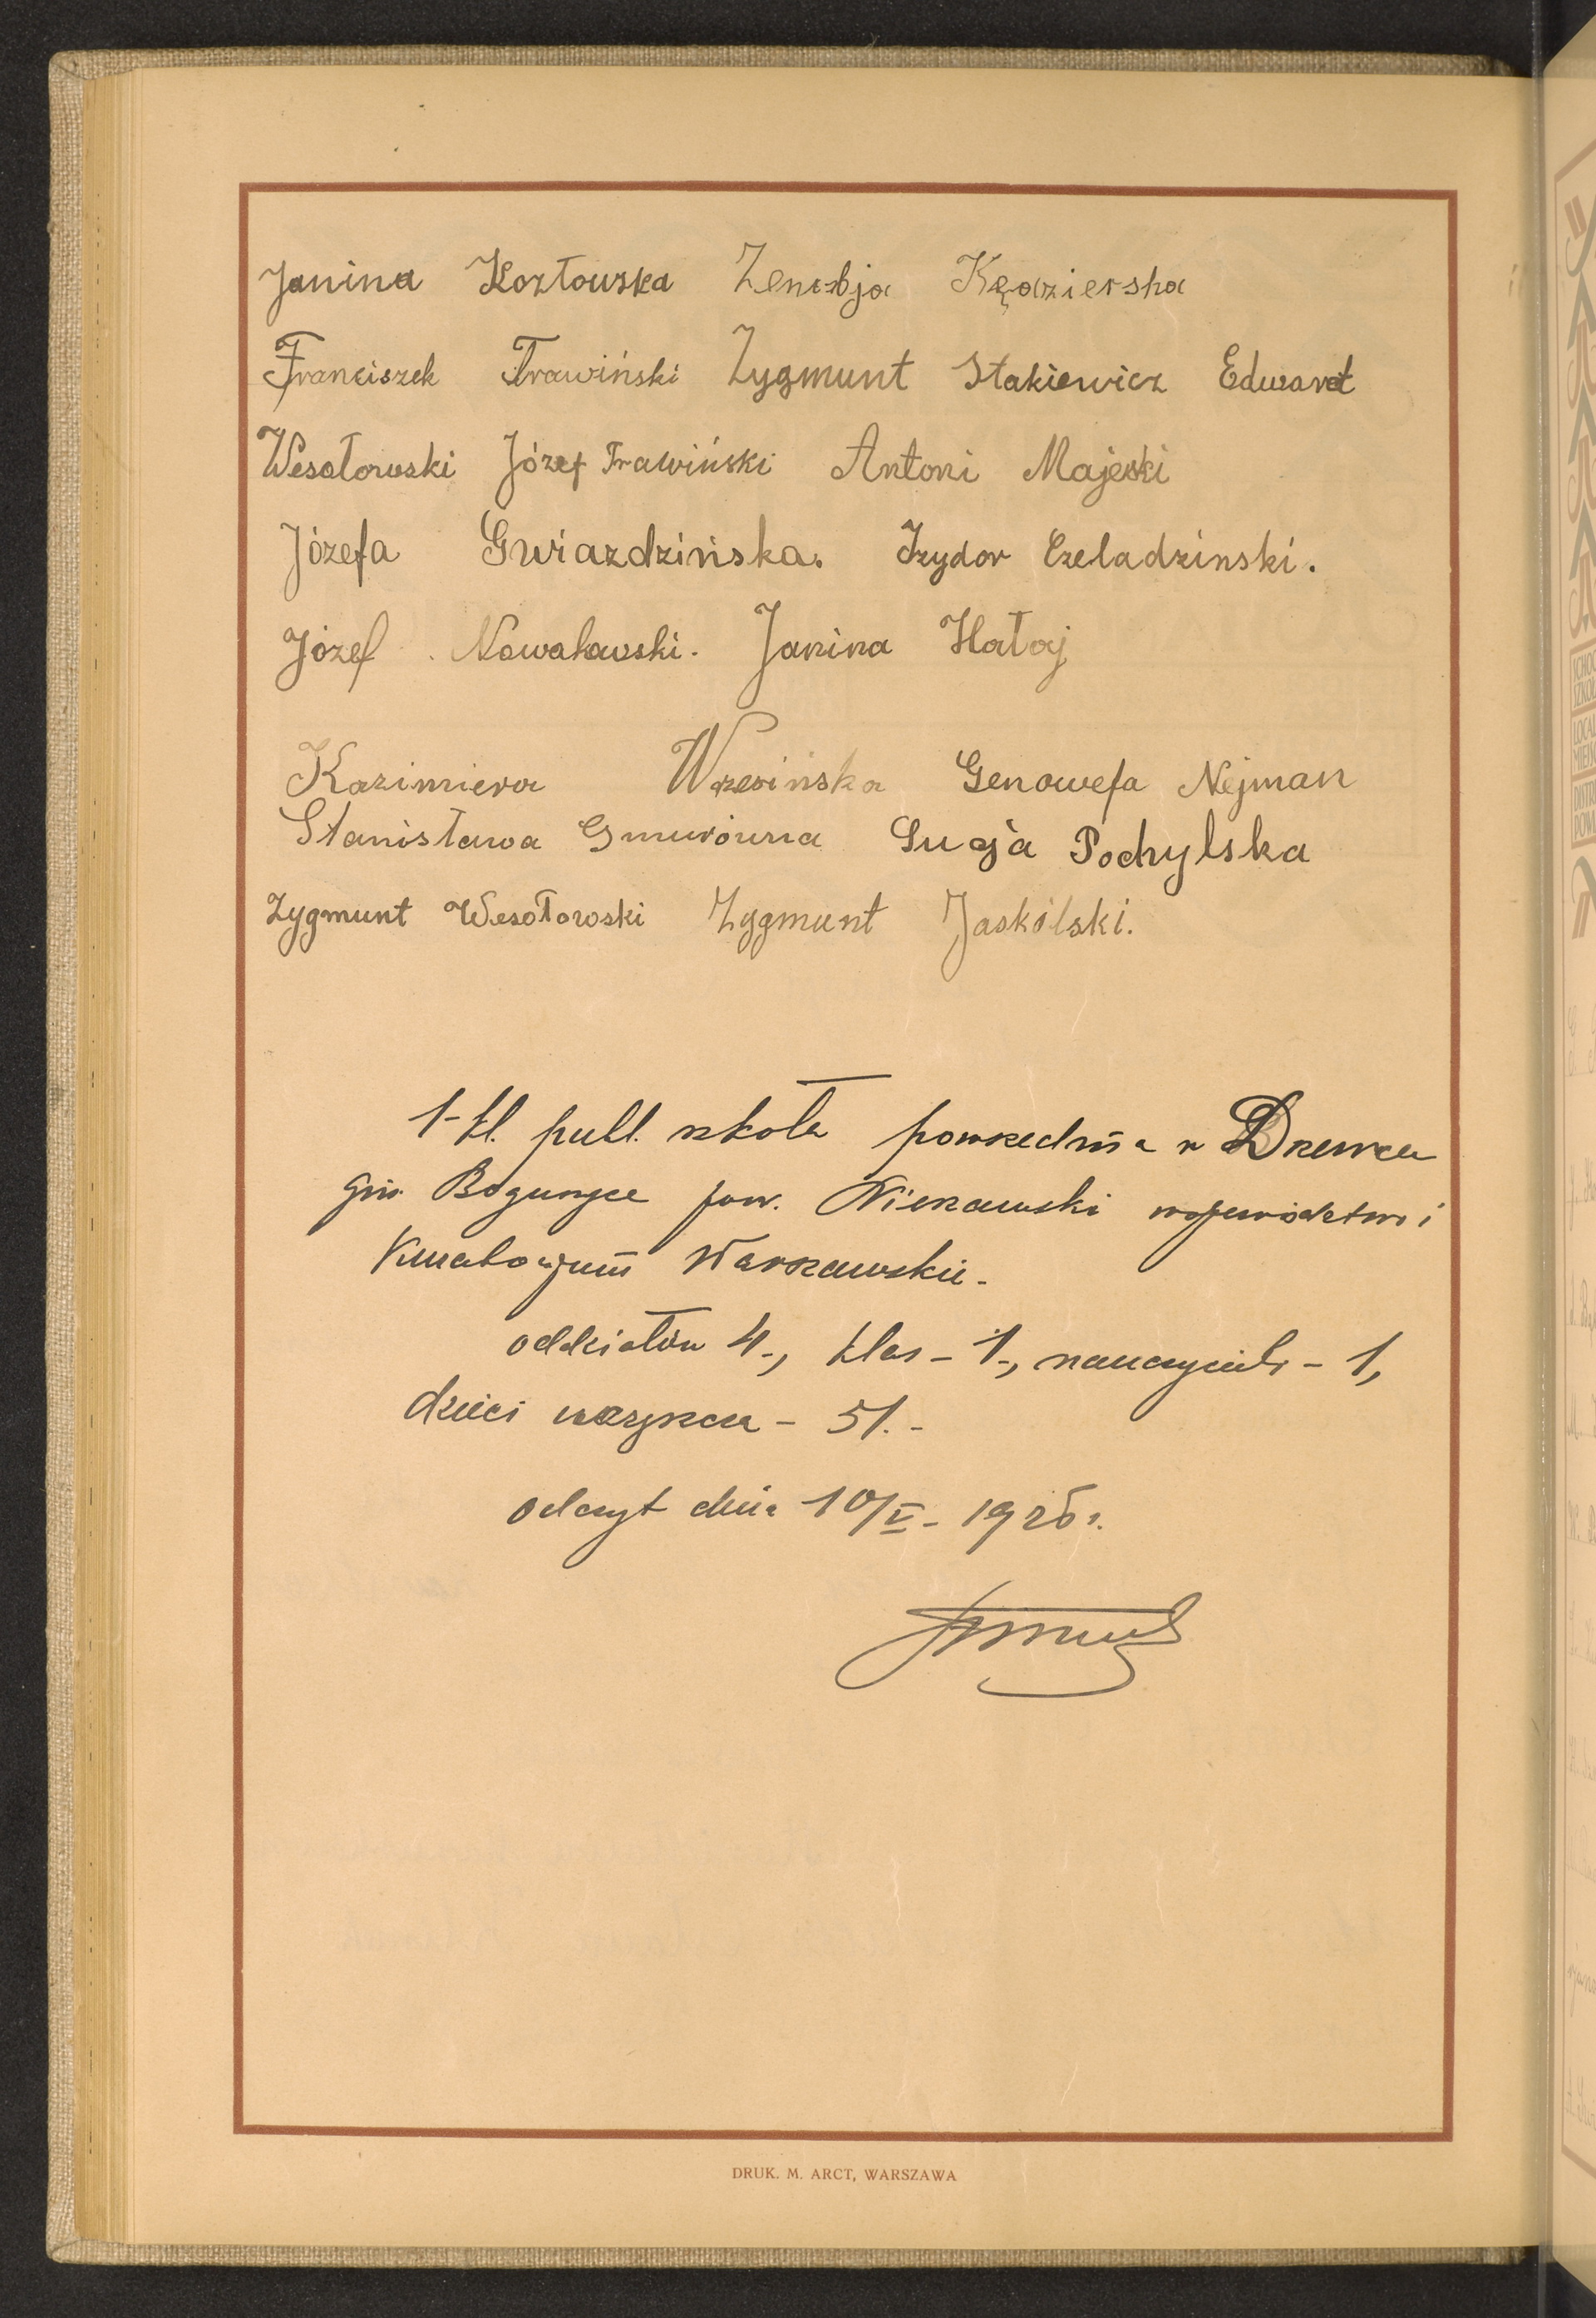 Janina Kozłowska Zenobja Kędzierska
Franciszek Trawiński Zygmunt Stakiewicz Edward
Wesołowski Józef Trawiński Antoni Majewski
Józefa Gwiazdzińska. Izydor Czeladzinski.
Józef Nowakowski. Janina Hałaj
Kazimiera Wrzesińska Genowefa Nejman
Stanisława Gmurówna Lucja Pochylska
Zygmunt Wesołowski Zygmunt Jaskólski.
1-kl. publ. szkoła powszechna w Drzewcu
gm. Bogunice pow. Nieszawski województwo i
Kuratorjum Warszawskie.
oddziałów 4., klas - 1., nauczycieli - 1,
dzieci uczęszcza - 51. -
odczyt dnia 10/V - 1926 r.
DRUK. M. ARCT, WARSZAWA